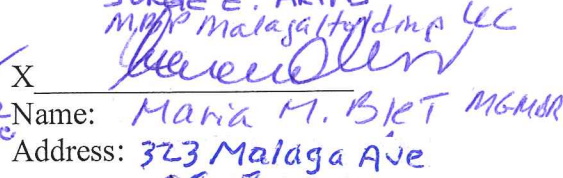 JORGE E.
MMP Malaga Holdings LLC
X
Name: Maria M. Blet MGMBR
Address: 323 Malaga Ave